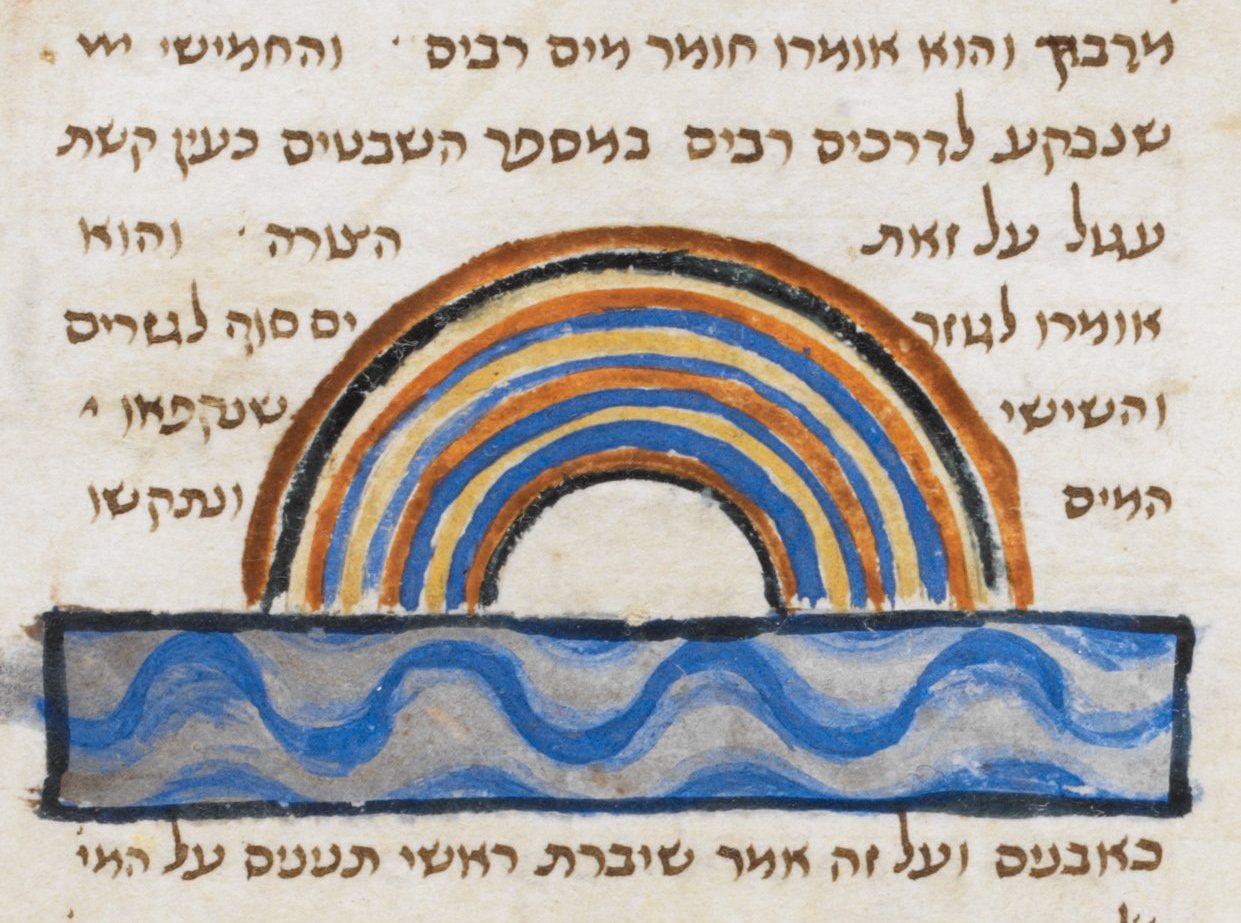 והוא אומרו חומר מים רבים · והחמישי
שנבקע לדרכים רבים במספר השבטים כעין קשת
עגול על זאת הצורה · והוא
אומרו לגוזר ים סוף לגזרים
והשישי שנקפאו
המים ונתקשו
כאובנים ועל זה אמר שיברת ראשי תנינים על המי